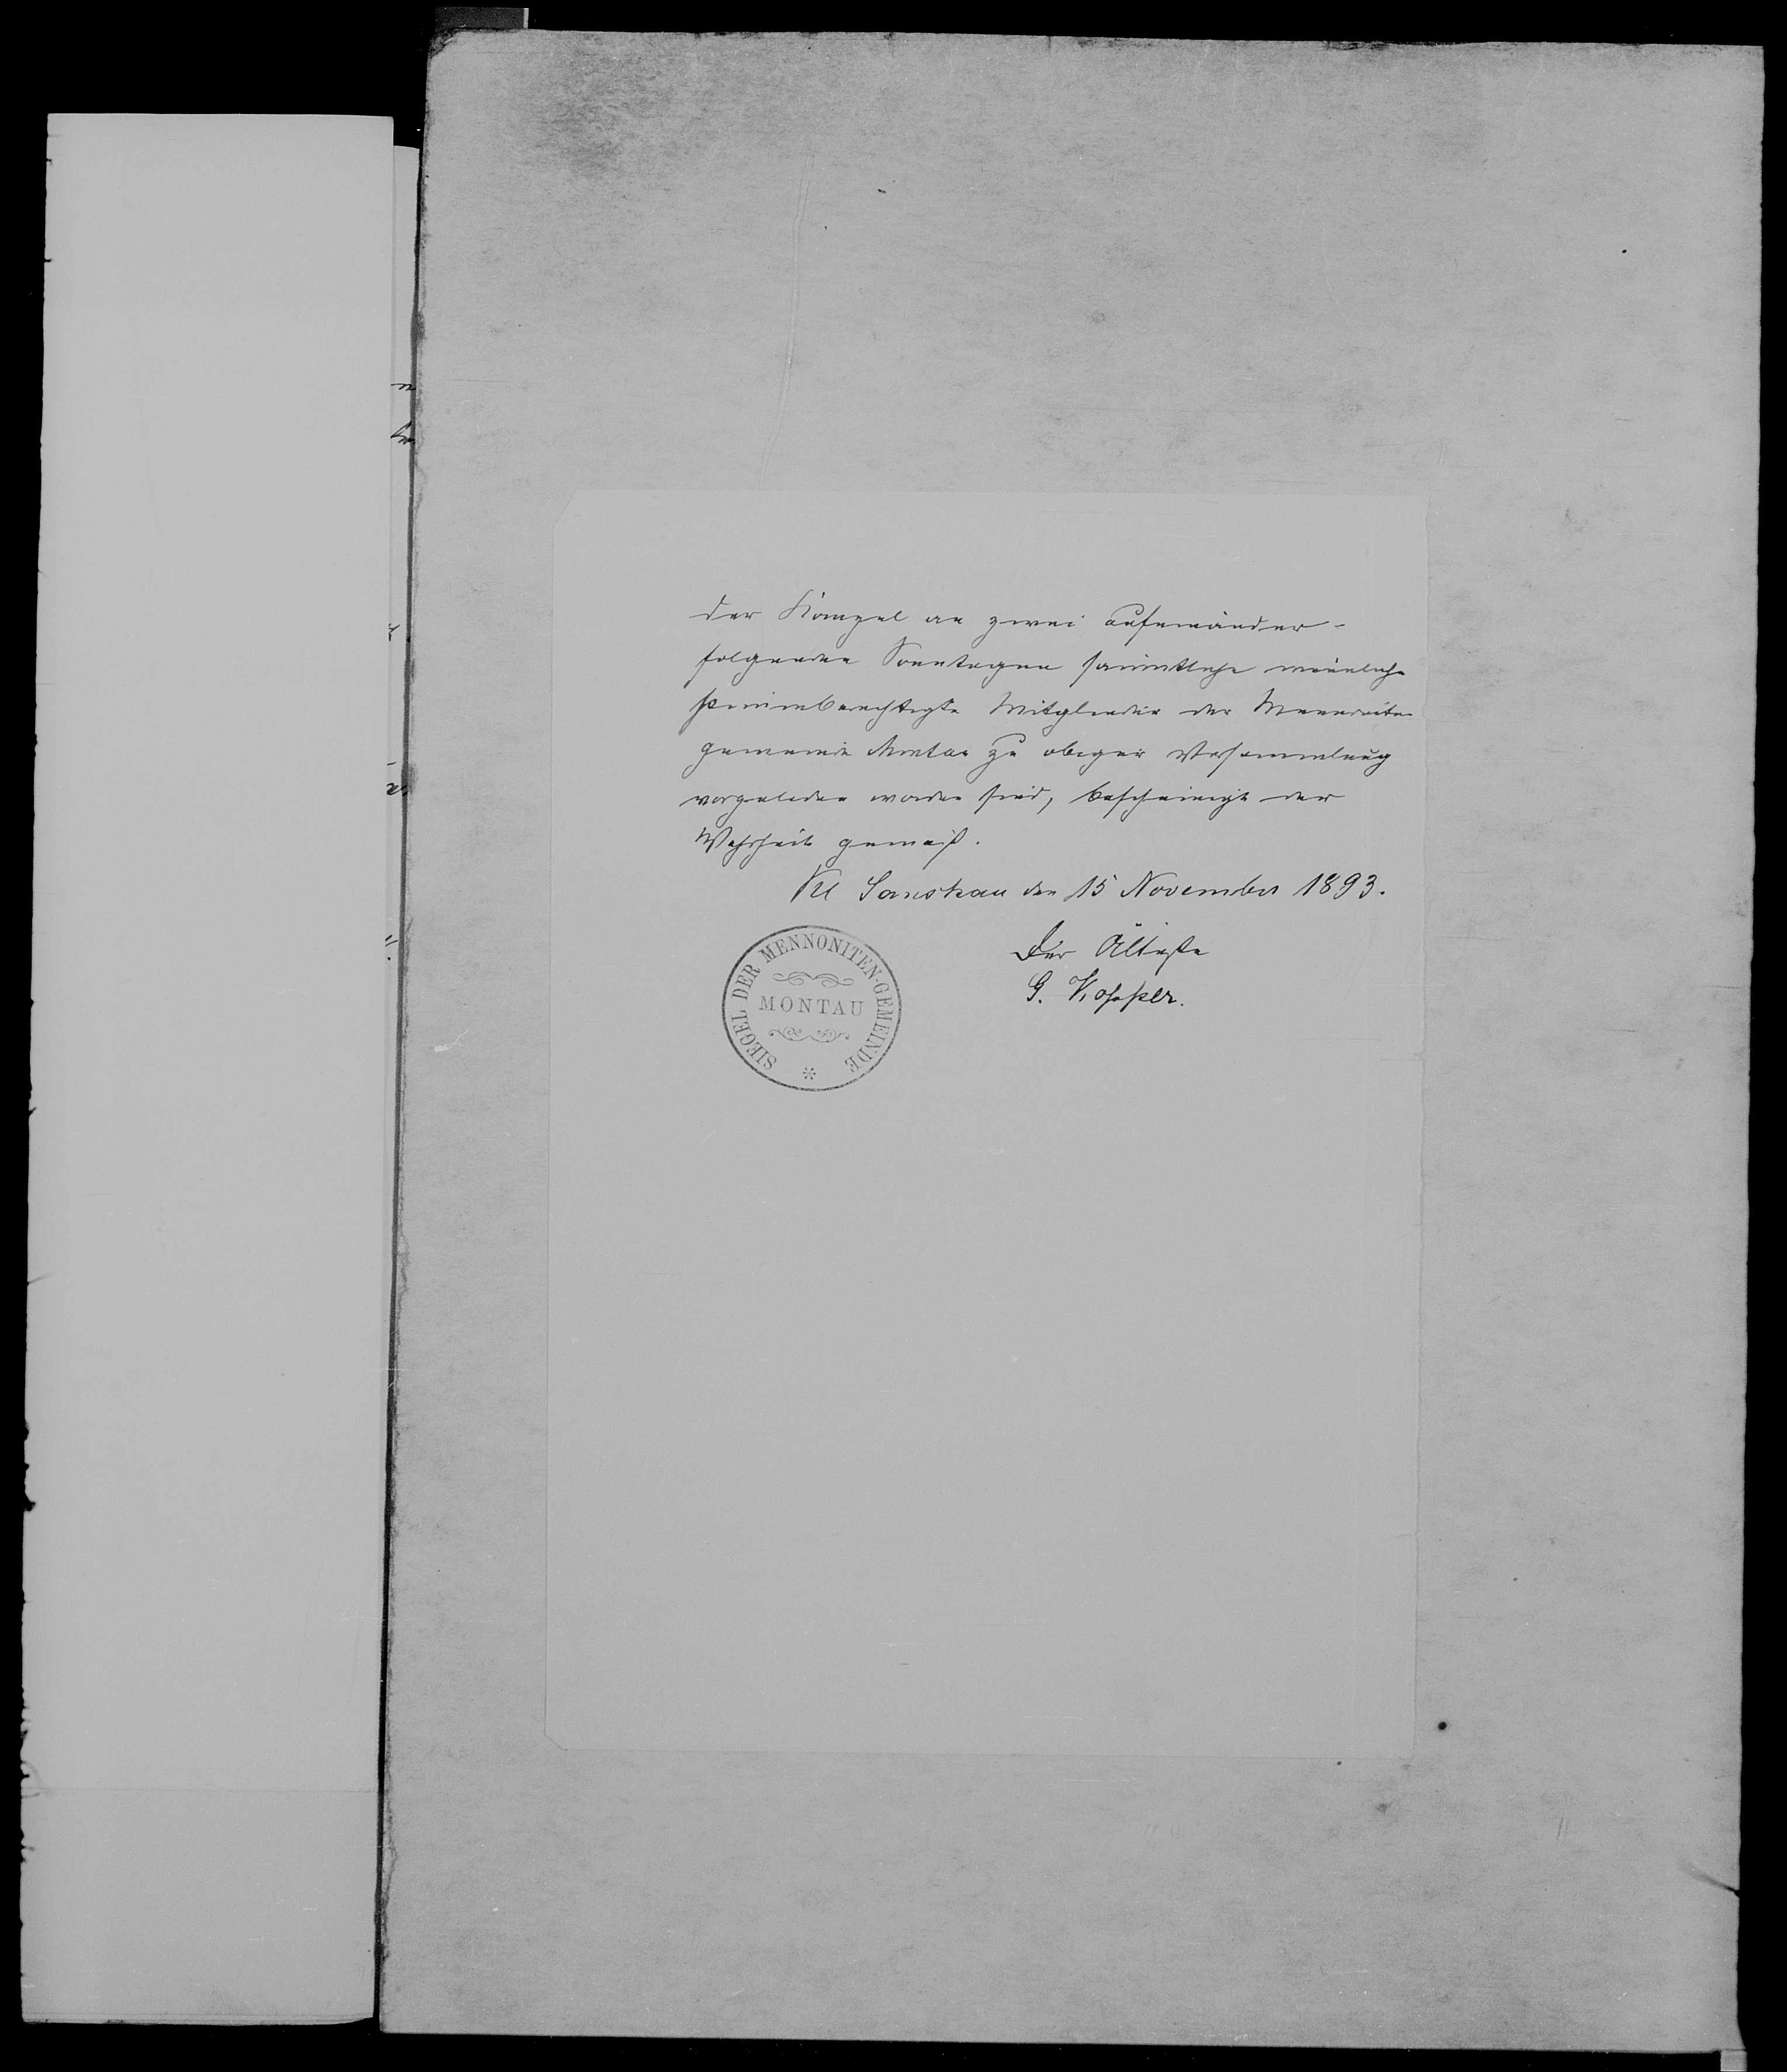 der Kanzel an zwei aufeinander-
folgenden Sonntagen sämmtliche männliche
stimmberechtigte Mitglieder der Mennoniten
gemeinde Montau zu obiger Versammlung
vorgeladen worden sind, bescheinigt der
Wahrheit gemäß.
Kl Sanskau den 15 November 1893.
Der Älteste
G.
SIEGEL DER MENNONITEN-GEMEINDE
MONTAU